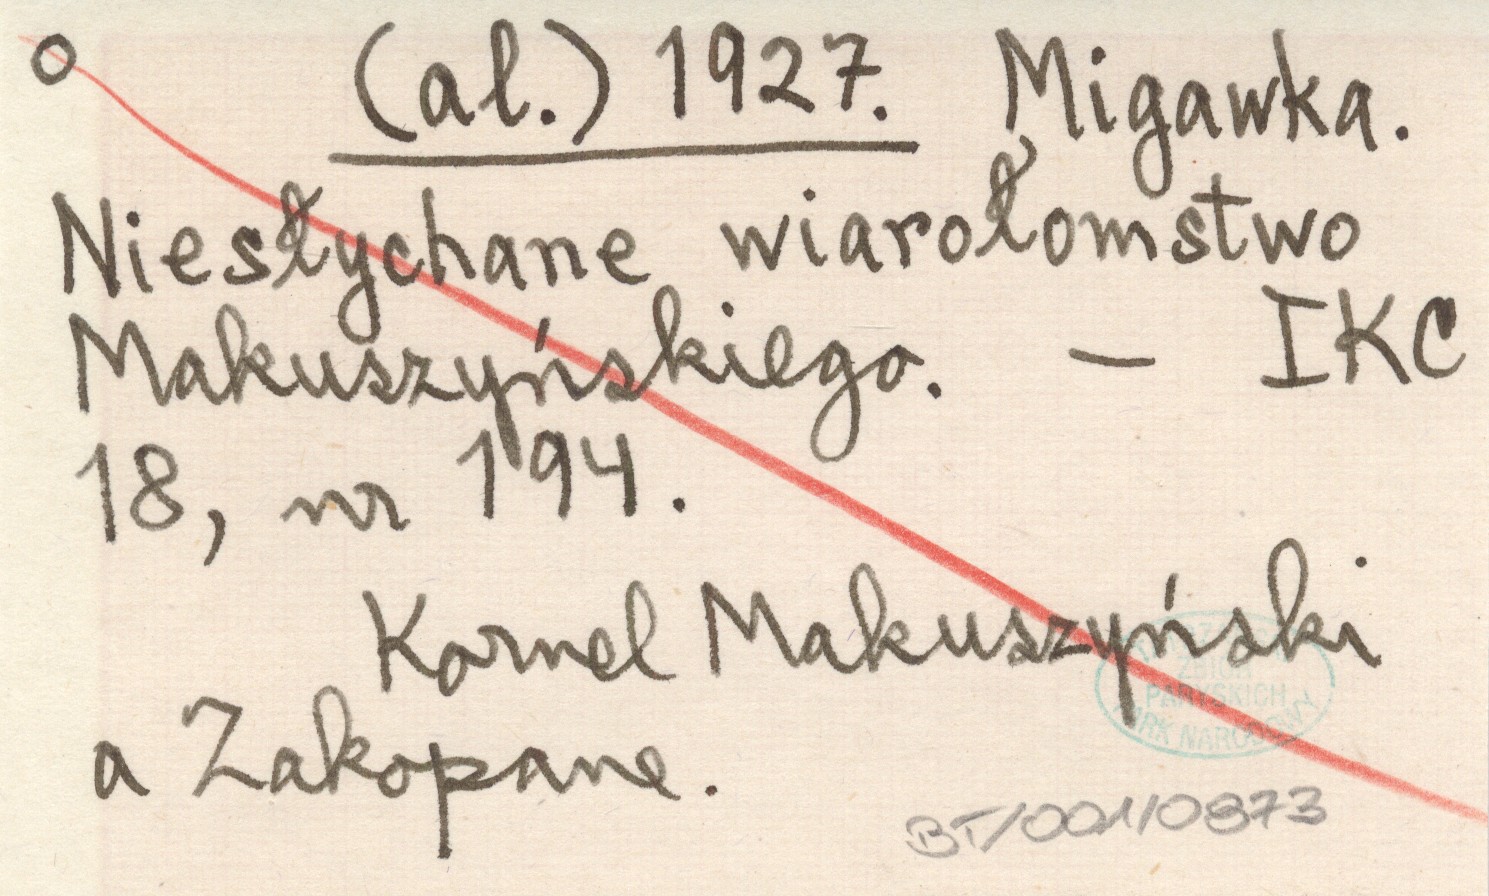 o (al.) 1927. Migawka.
Niesłychane wiarołomstwo
Makuszyńskiego. — IKC
18, nr 194.
Kornel Makuszyński
a Zakopane.
ZBIÓR
PARYSKICH
PARK NARODOWY
BT/001/0873